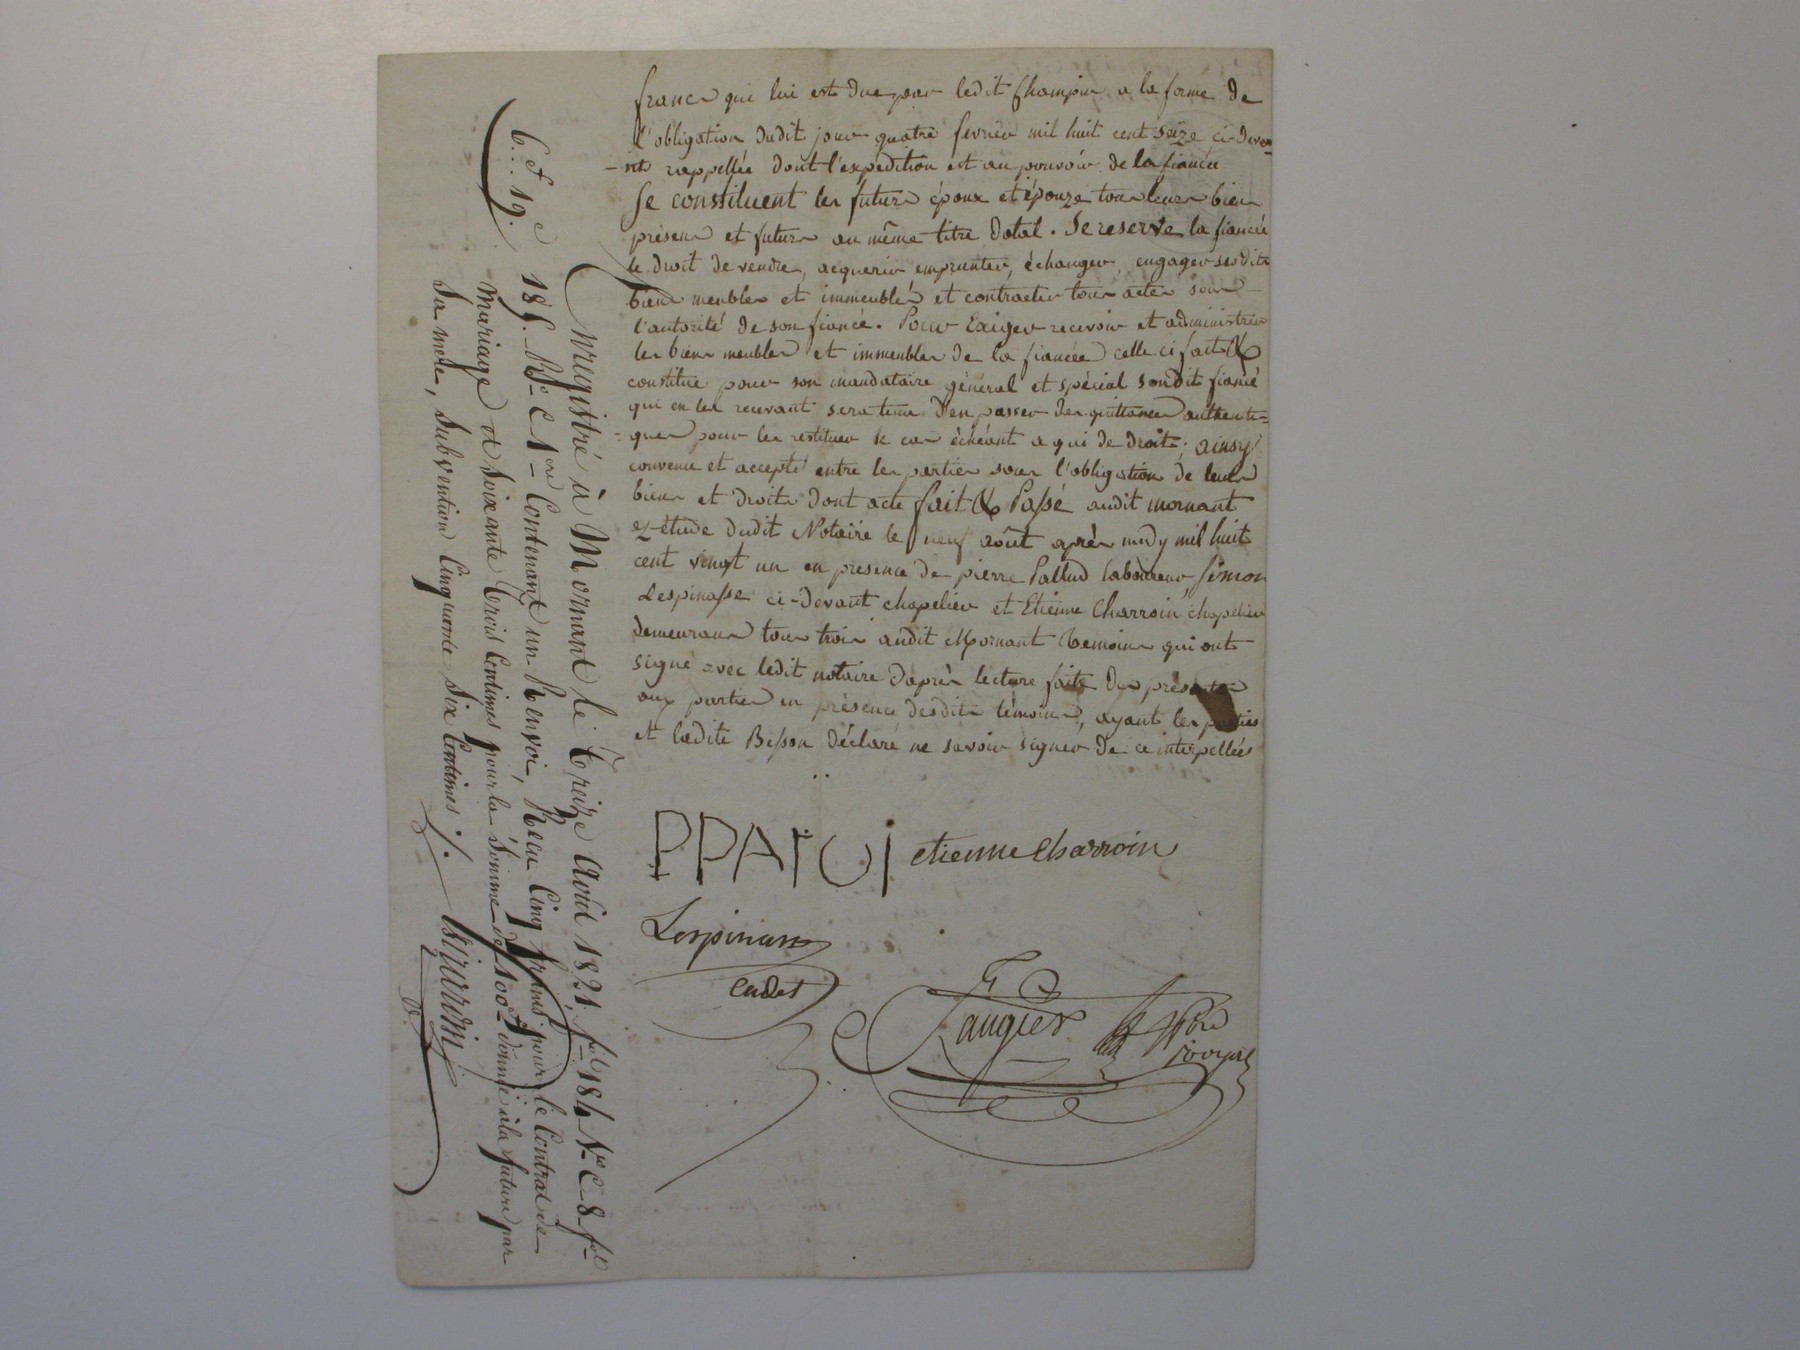 francs qui lui est due par ledit Champin a la forme de
l'obligation dudit jour quatre fevrier mil huit cent seize ci-devan-
-nts rappellée dont l'expédition est au pouvoir de la fiancée
Se constituent les futurs époux et épouze tous leurs biens
présens et futurs au même titre dotal. Se reserve la fiancée
le droit de vendre, acquerir emprunter, échanger, engager sesdits
biens meubles et immeubles et contracter tous actes sous
l'autorité de son fiancé. Pour Exiger recevoir et administrer
les biens meubles et immeubles de la fiancée celle ci fait &
constitue pour son mandataire général et spécial sondit fiancé
qui en les recevant sera tenu d'en passer des quittances authenti=
=ques pour les restituer le cas échéant a qui de droit; ainsy
convenu et accepté entre les parties sous l'obligation de leurs
biens et droits dont acte fait & Passé audit mornant
et étude dudit Notaire le neuf août après midy mil huit
cent vingt un en presence de pierre Pallud laboureur, Simon
Lespinasse ci-devant chapelier et Etienne Charroin chapelier
demeurans tous trois audit Mornant temoins qui ont
signé avec ledit notaire daprès lecture faite des présentes
aux parties en présence desdits témoins, ayant les parties
et ladite Besson déclaré ne savoir signer de ce interpellées
PPAlUI etienne Charroin
Lespinasse
cadet
Laugier
6 f 19 c
Enregistré à Mornant le Treize Août 1821, fo 184 Vo C 8 fol
185 Ro C 1ere Contenant un Renvoi, Recu Cinq francs pour le Contrat de
Mariage et Soixante Trois Centimes pour la Somme de 100 f donnée à la future par
Sa mere, Subvention Cinquante Six Centimes ./.